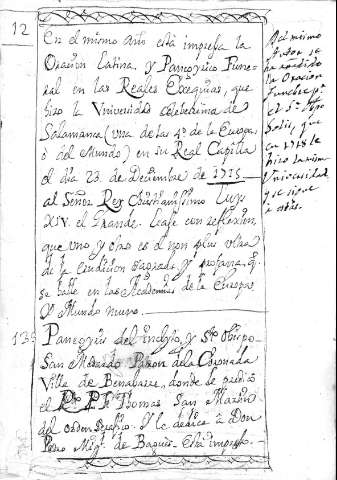 12
En el mismo año está impresa la
Oracion Latina, y Panegyrico Fune-
ral en las Reales Exequias, que
hizo la Universidad celeberrima de
Salamanca (una de las 4º de la Europa,
ò del Mundo) en su Real Capilla
el dia 23 de Deciembre de 1715
al Señor Rey Christianissimo Luys
XIV. el Grande. Lease con reflexion,
que uno, y otro es el non plus ultra
de la erudicion sagrada, y profana, q.
se halle en las Academias de la Europa,
Mundo nuevo.
Del mismo
Autor se
ha
la Oracion
funebre pª
el Sr.
Solis, que
en 1718 le
hizo la misma
Universidad
y se sigue
a esta.
13
Panegyris del inclyto, y Sto Obispo
San Medardo Patron de la Coronada
Villa de Benabarre, donde le predicò
el Rdo P. Fr. Thomas San Martin
del orden Serafico. Y le dedica à Don
Pedro Migl. de Baquer. Está impresso.